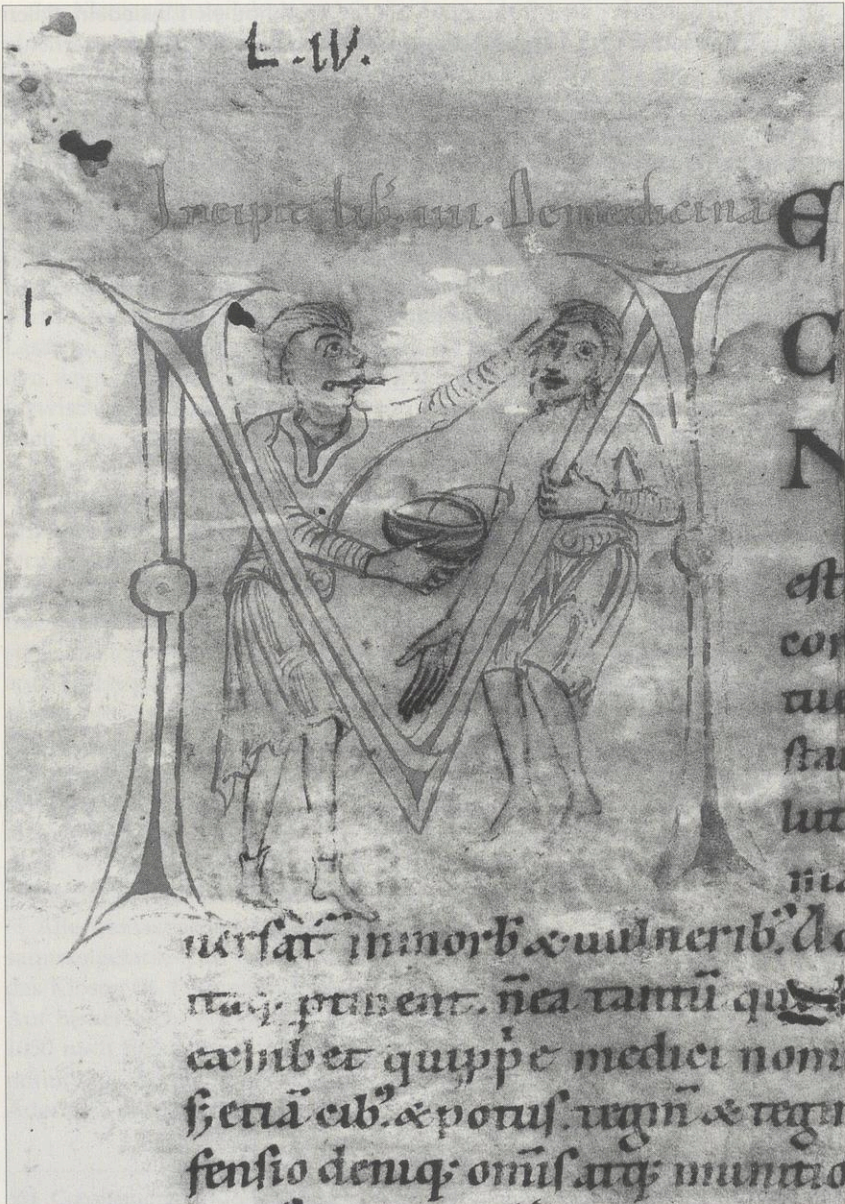 L.IV.
Incipit lib. iiii. De medicina
I.
M E
C
N
est
cor
tue
stau
lut
ma
uersat in morb & uulnerib. Ad
itaq; ptinent. n ea tantu
exhibet quippe medici nom
s; etiā cib. & potus. tegm̄ & tegm
fensio deniq; om̄is atq; munitio